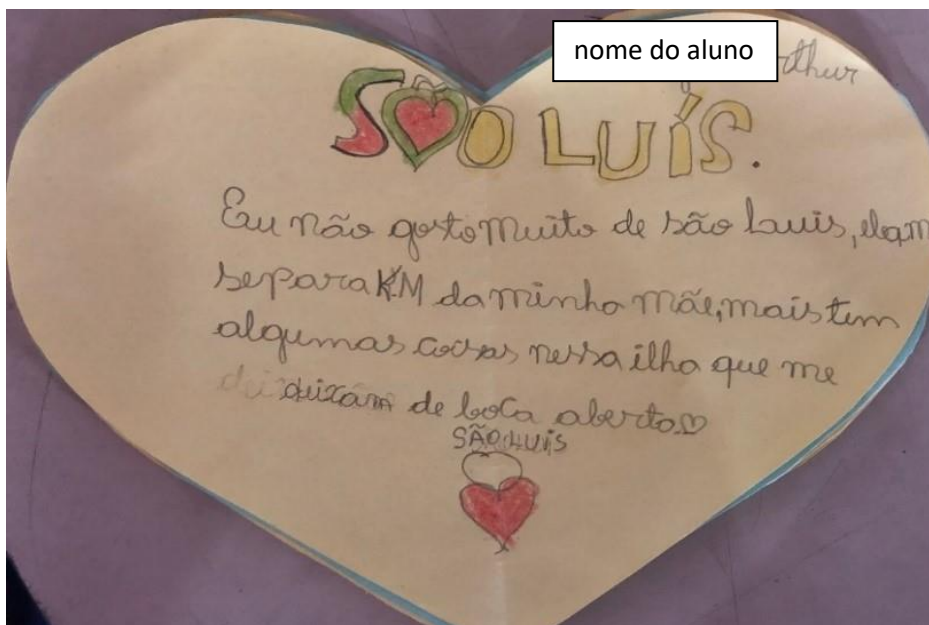 nome do aluno
thur
SÃO LUÍS.
Eu não gosto muito de são Luis, ela m
separa KM da minha mãe, mais tem
algumas coisas nessa ilha que me
dei deixam de boca aberta
SÃO LUIS